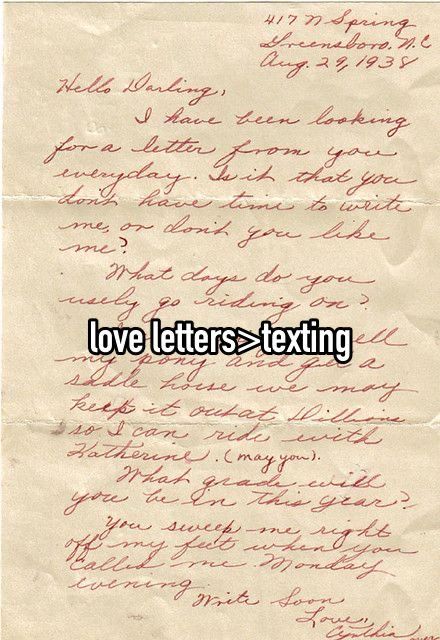 417 N Spring
Greensboro, N.C
Aug. 29, 1938
Hello Darling,
I have been looking
for a letter from you
everyday. Is it that you
dont have time to write
me, or don't you like
me?
What days do you
usely go riding on?
love letters>texting
ell
my pony and get a
sadle horse we may
keep it out at Dillions
so I can ride with
Katherine. (may you).
What grade will
you be in this year?
You sweep me right
off my feet when you
called me Monday
evening
Write Soon
Love,
Cynthia